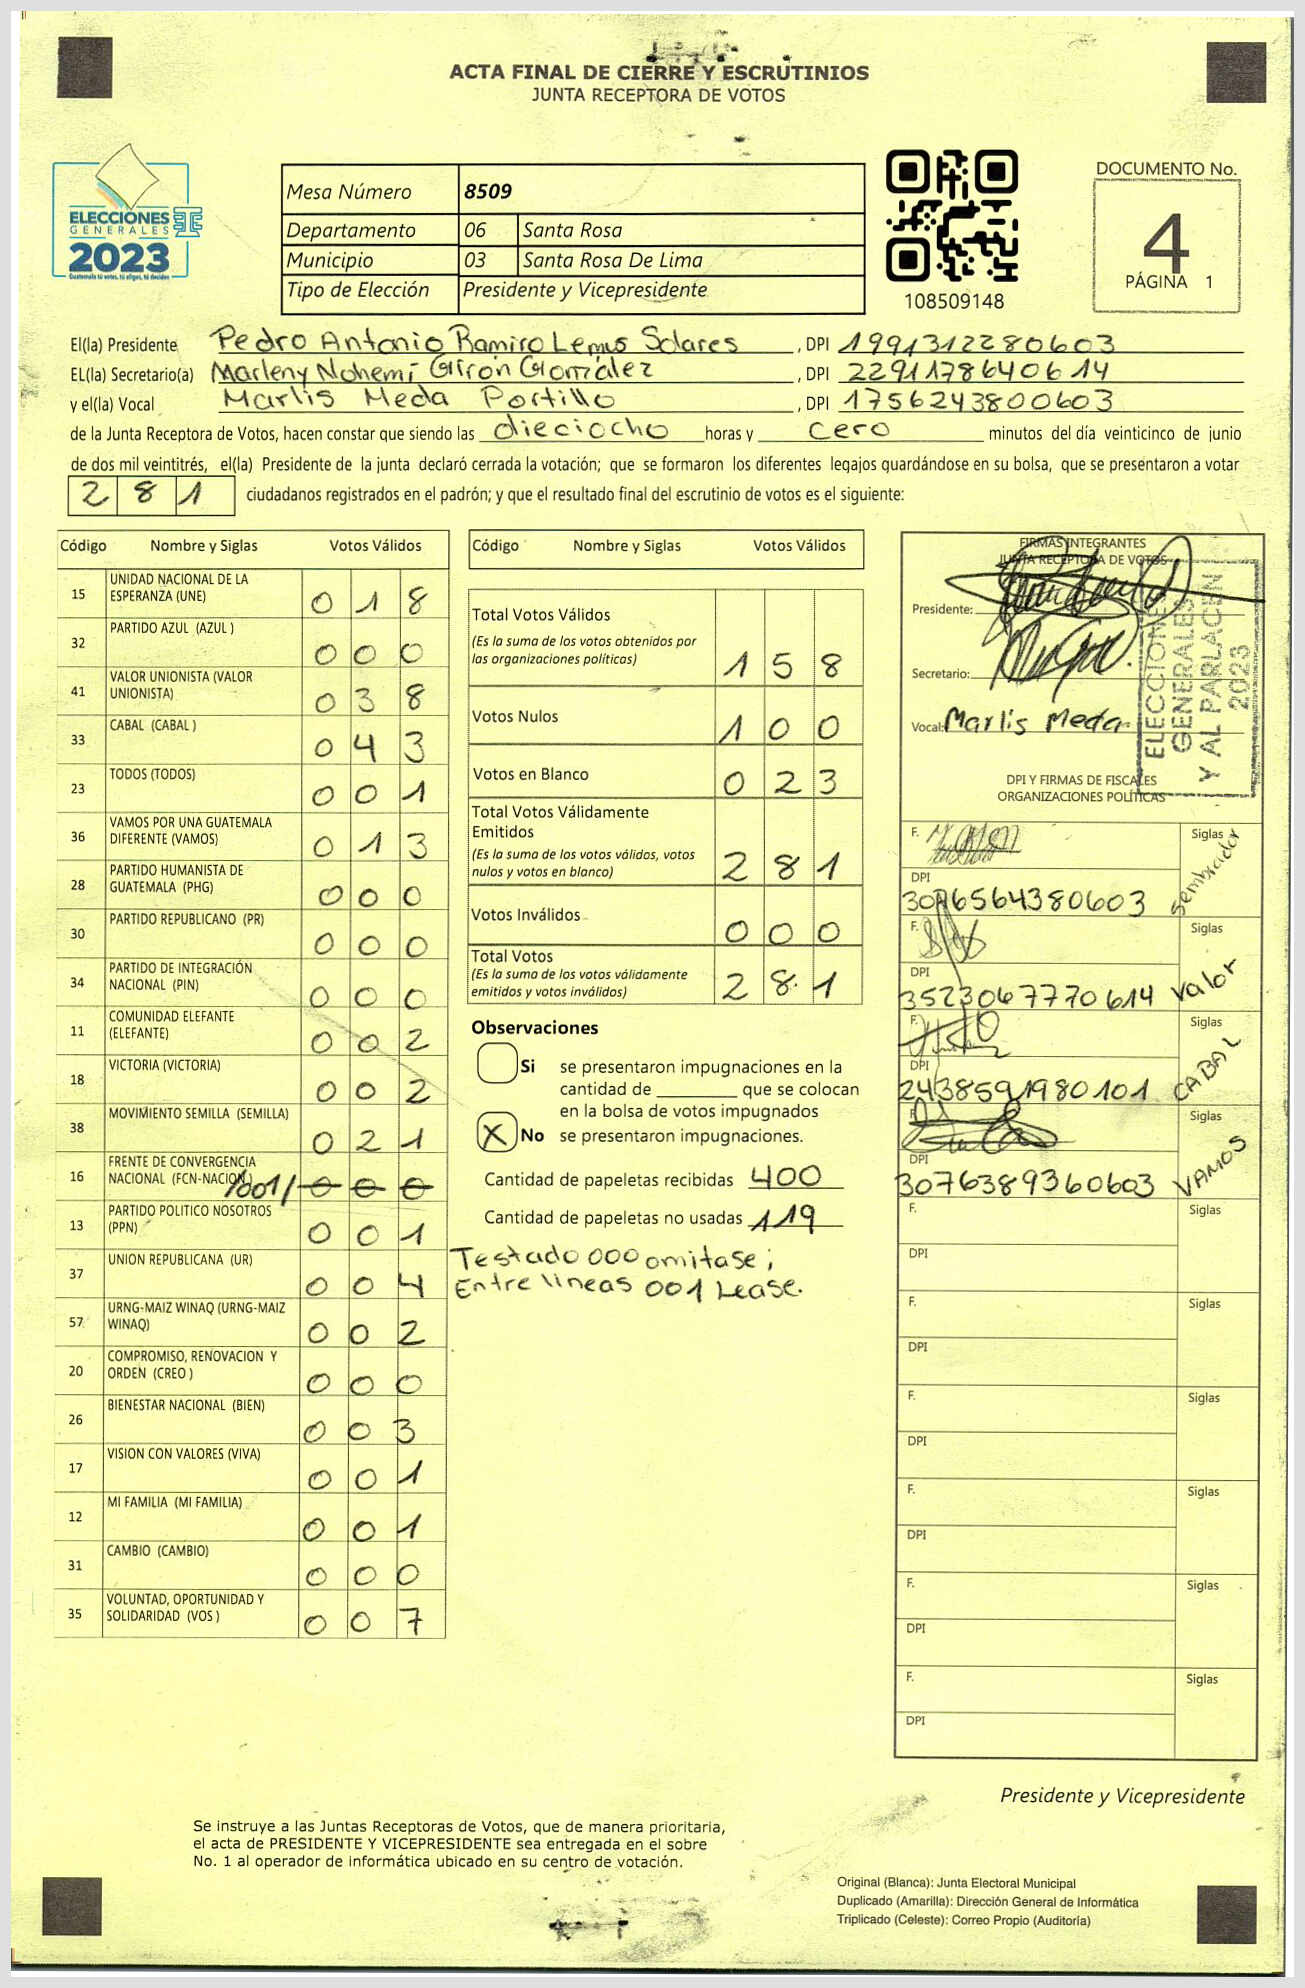 ACTA FINAL DE CIERRE Y ESCRUTINIOS
JUNTA RECEPTORA DE VOTOS
ELECCIONES
GENERALES
2023
Guatemala tú votas, tú eliges, tú decides
Mesa Número 8509
Departamento 06 Santa Rosa
Municipio 03 Santa Rosa De Lima
Tipo de Elección Presidente y Vicepresidente
108509148
DOCUMENTO No.
4
PÁGINA 1
El(la) Presidente Pedro Antonio Ramiro Lemus Solares, DPI 1991312280603
EL(la) Secretario(a) Marleny Nohemí Girón González, DPI 2291178640614
y el(la) Vocal Marlis Meda Portillo, DPI 1756243800603
de la Junta Receptora de Votos, hacen constar que siendo las dieciocho horas y cero minutos del día veinticinco de junio
de dos mil veintitrés, el(la) Presidente de la junta declaró cerrada la votación; que se formaron los diferentes legajos guardándose en su bolsa, que se presentaron a votar
281 ciudadanos registrados en el padrón; y que el resultado final del escrutinio de votos es el siguiente:
Código Nombre y Siglas Votos Válidos
15 UNIDAD NACIONAL DE LA ESPERANZA (UNE) 018
32 PARTIDO AZUL (AZUL ) 000
41 VALOR UNIONISTA (VALOR UNIONISTA) 038
33 CABAL (CABAL ) 043
23 TODOS (TODOS) 001
36 VAMOS POR UNA GUATEMALA DIFERENTE (VAMOS) 013
28 PARTIDO HUMANISTA DE GUATEMALA (PHG) 000
30 PARTIDO REPUBLICANO (PR) 000
34 PARTIDO DE INTEGRACIÓN NACIONAL (PIN) 000
11 COMUNIDAD ELEFANTE (ELEFANTE) 002
18 VICTORIA (VICTORIA) 002
38 MOVIMIENTO SEMILLA (SEMILLA) 021
16 FRENTE DE CONVERGENCIA NACIONAL (FCN-NACION) /001/ 000
13 PARTIDO POLITICO NOSOTROS (PPN) 001
37 UNION REPUBLICANA (UR) 004
57 URNG-MAIZ WINAQ (URNG-MAIZ WINAQ) 002
20 COMPROMISO, RENOVACION Y ORDEN (CREO ) 000
26 BIENESTAR NACIONAL (BIEN) 003
17 VISION CON VALORES (VIVA) 001
12 MI FAMILIA (MI FAMILIA) 001
31 CAMBIO (CAMBIO) 000
35 VOLUNTAD, OPORTUNIDAD Y SOLIDARIDAD (VOS ) 007
Código Nombre y Siglas Votos Válidos
Total Votos Válidos
(Es la suma de los votos obtenidos por
las organizaciones políticas) 158
Votos Nulos 100
Votos en Blanco 023
Total Votos Válidamente
Emitidos
(Es la suma de los votos válidos, votos
nulos y votos en blanco) 281
Votos Inválidos 000
Total Votos
(Es la suma de los votos válidamente
emitidos y votos inválidos) 281
Observaciones
Si se presentaron impugnaciones en la
cantidad de ________ que se colocan
en la bolsa de votos impugnados
X No se presentaron impugnaciones.
Cantidad de papeletas recibidas 400
Cantidad de papeletas no usadas 119
Testado 000 omitase;
Entre lineas 001 Lease.
FIRMAS INTEGRANTES
JUNTA RECEPTORA DE VOTOS
Presidente:
Secretario:
Vocal: Marlis Meda
ELECCIONES
GENERALES
Y AL PARLACEN
2023
DPI Y FIRMAS DE FISCALES
ORGANIZACIONES POLÍTICAS
F. Siglas Sembrador
DPI 3076564380603
F. Siglas Valor
DPI 3523067770614
F. Siglas CABAL
DPI 2438591980101
F. Siglas VAMOS
DPI 3076389360603
F. Siglas
DPI
F. Siglas
DPI
F. Siglas
DPI
F. Siglas
DPI
F. Siglas
DPI
F. Siglas
DPI
Presidente y Vicepresidente
Se instruye a las Juntas Receptoras de Votos, que de manera prioritaria,
el acta de PRESIDENTE Y VICEPRESIDENTE sea entregada en el sobre
No. 1 al operador de informática ubicado en su centro de votación.
Original (Blanca): Junta Electoral Municipal
Duplicado (Amarilla): Dirección General de Informática
Triplicado (Celeste): Correo Propio (Auditoría)